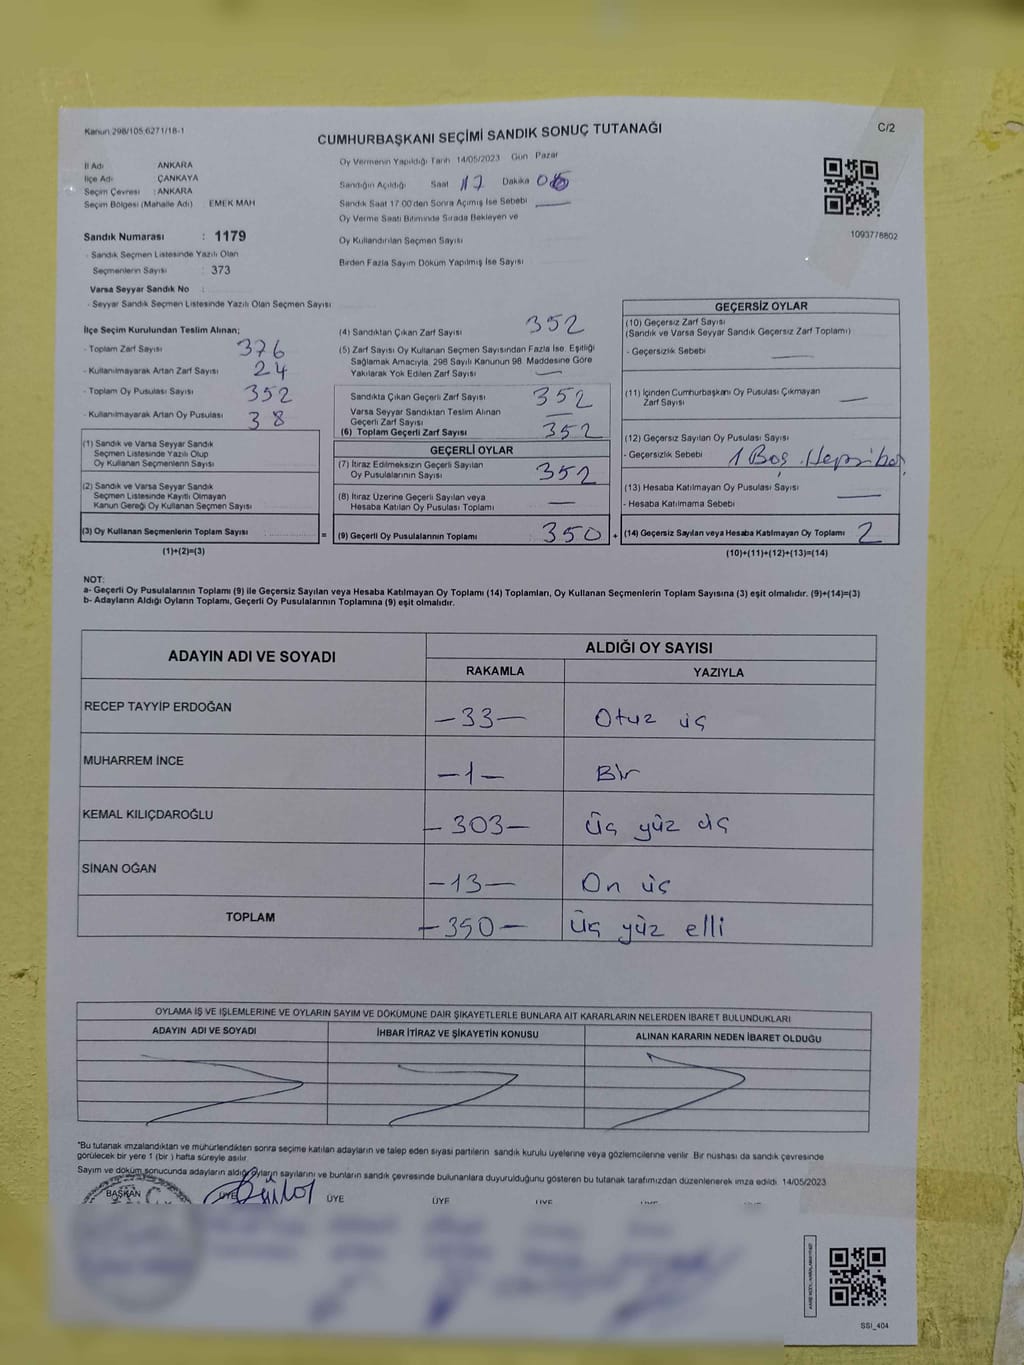 Kanun 298/105,6271/18-1
C/2
CUMHURBAŞKANI SEÇİMİ SANDIK SONUÇ TUTANAĞI
İl Adı ANKARA
İlçe Adı ÇANKAYA
Seçim Çevresi : ANKARA
Seçim Bölgesi (Mahalle Adı) EMEK MAH
Oy Vermenin Yapıldığı Tarih 14/05/2023 Gün Pazar
Sandığın Açıldığı Saat 17 Dakika
Sandık Saat 17:00'den Sonra Açılmış İse Sebebi
Oy Verme Saati Bitiminde Sırada Bekleyen ve
Oy Kullandırılan Seçmen Sayısı
Birden Fazla Sayım Döküm Yapılmış İse Sayısı
1093778802
Sandık Numarası : 1179
- Sandık Seçmen Listesinde Yazılı Olan
Seçmenlerin Sayısı : 373
Varsa Seyyar Sandık No :
- Seyyar Sandık Seçmen Listesinde Yazılı Olan Seçmen Sayısı
İlçe Seçim Kurulundan Teslim Alınan;
- Toplam Zarf Sayısı 376
- Kullanılmayarak Artan Zarf Sayısı 24
- Toplam Oy Pusulası Sayısı 352
- Kullanılmayarak Artan Oy Pusulası 38
(1) Sandık ve Varsa Seyyar Sandık
Seçmen Listesinde Yazılı Olup
Oy Kullanan Seçmenlerin Sayısı
(2) Sandık ve Varsa Seyyar Sandık
Seçmen Listesinde Kayıtlı Olmayan
Kanun Gereği Oy Kullanan Seçmen Sayısı
(3) Oy Kullanan Seçmenlerin Toplam Sayısı
(1)+(2)=(3)
(4) Sandıktan Çıkan Zarf Sayısı 352
(5) Zarf Sayısı Oy Kullanan Seçmen Sayısından Fazla İse, Eşitliği
Sağlamak Amacıyla, 298 Sayılı Kanunun 98. Maddesine Göre
Yakılarak Yok Edilen Zarf Sayısı —
Sandıkta Çıkan Geçerli Zarf Sayısı 352
Varsa Seyyar Sandıktan Teslim Alınan
Geçerli Zarf Sayısı —
(6) Toplam Geçerli Zarf Sayısı 352
GEÇERLİ OYLAR
(7) İtiraz Edilmeksizin Geçerli Sayılan
Oy Pusulalarının Sayısı 352
(8) İtiraz Üzerine Geçerli Sayılan veya
Hesaba Katılan Oy Pusulası Toplamı —
= (9) Geçerli Oy Pusulalarının Toplamı 350 +
GEÇERSİZ OYLAR
(10) Geçersiz Zarf Sayısı
(Sandık ve Varsa Seyyar Sandık Geçersiz Zarf Toplamı)
- Geçersizlik Sebebi —
(11) İçinden Cumhurbaşkanı Oy Pusulası Çıkmayan
Zarf Sayısı —
(12) Geçersiz Sayılan Oy Pusulası Sayısı
- Geçersizlik Sebebi 1 Boş,
(13) Hesaba Katılmayan Oy Pusulası Sayısı —
- Hesaba Katılmama Sebebi
(14) Geçersiz Sayılan veya Hesaba Katılmayan Oy Toplamı 2
(10)+(11)+(12)+(13)=(14)
NOT:
a- Geçerli Oy Pusulalarının Toplamı (9) ile Geçersiz Sayılan veya Hesaba Katılmayan Oy Toplamı (14) Toplamları, Oy Kullanan Seçmenlerin Toplam Sayısına (3) eşit olmalıdır. (9)+(14)=(3)
b- Adayların Aldığı Oyların Toplamı, Geçerli Oy Pusulalarının Toplamına (9) eşit olmalıdır.
ADAYIN ADI VE SOYADI
ALDIĞI OY SAYISI
RAKAMLA YAZIYLA
RECEP TAYYİP ERDOĞAN —33— Otuz üç
MUHARREM İNCE —1— Bir
KEMAL KILIÇDAROĞLU —303— Üç yüz üç
SİNAN OĞAN —13— On üç
TOPLAM —350— Üç yüz elli
OYLAMA İŞ VE İŞLEMLERİNE VE OYLARIN SAYIM VE DÖKÜMÜNE DAİR ŞİKAYETLERLE BUNLARA AİT KARARLARIN NELERDEN İBARET BULUNDUKLARI
ADAYIN ADI VE SOYADI İHBAR İTİRAZ VE ŞİKAYETİN KONUSU ALINAN KARARIN NEDEN İBARET OLDUĞU
*Bu tutanak imzalandıktan ve mühürlendikten sonra seçime katılan adayların ve talep eden siyasi partilerin sandık kurulu üyelerine veya gözlemcilerine verilir. Bir nüshası da sandık çevresinde
görülecek bir yere 1 (bir) hafta süreyle asılır.
Sayım ve döküm sonucunda adayların aldığı oyların sayılarını ve bunların sandık çevresinde bulunanlara duyurulduğunu gösteren bu tutanak tarafımızdan düzenlenerek imza edildi. 14/05/2023
BAŞKAN ÜYE ÜYE ÜYE ÜYE
SSI_404